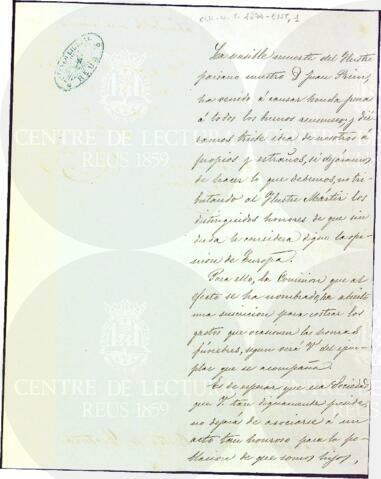 La sensible muerte del Ilustre
paisano nuestro D. Juan Prim,
ha venido á causar honda pena
á todos los buenos reusenses, y di
riamos triste idea de nosotros á
propios y estraños, si dejáramos
de hacer lo que debemos, no tri-
butando al Ilustre Mártir los
distinguidos honores de que sin
duda le considera digno la opi-
nion de Europa.
Para ello, la Comision que al
efecto se ha nombrado, ha abierto
una suscricion para costear los
gastos que ocasionen las honras
fúnebres, segun verá V. del ejem-
plar que se acompaña.
Es de esperar que esa Sociedad,
que V. tan dignamente preside,
no dejará de asociarse á un
acto tan honroso para la po-
blacion de que somos hijos,
CENTRE DE LECTURA
REUS 1859
CENTRE DE LECTURA
REUS 1859
REUS